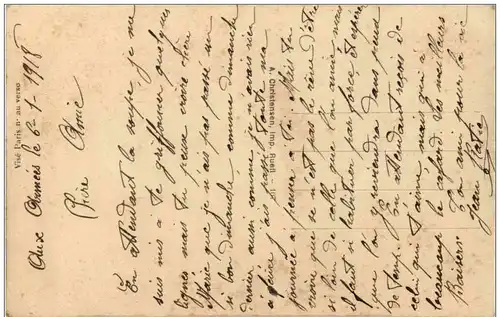 Visé Paris. n° au verso
A. Christensen, Imp. Rueil.
Aux Armées le 6-1-1918
Chère Amie
En attendant la soupe je me
suis mis à te griffonner quelques
lignes mais tu peux croire chère
Marie que je n'ai pas passé un
si bon dimanche comme dimanche
dernier aussi comme je n'avais rien
à faire j'ai passé toute ma
journée à penser à toi. Mais tu
croire que ce n'est pas la rêve d'être
si loin de celle que l'on aime mais
il faut s'habituer par force et espérer
que l'on y reviendra dans peu
de temps. En attendant reçois de
celui qui t'aime mais qui a
beaucoup le cafard ses meilleurs
Baisers.
Ton ami pour la vie
Jean